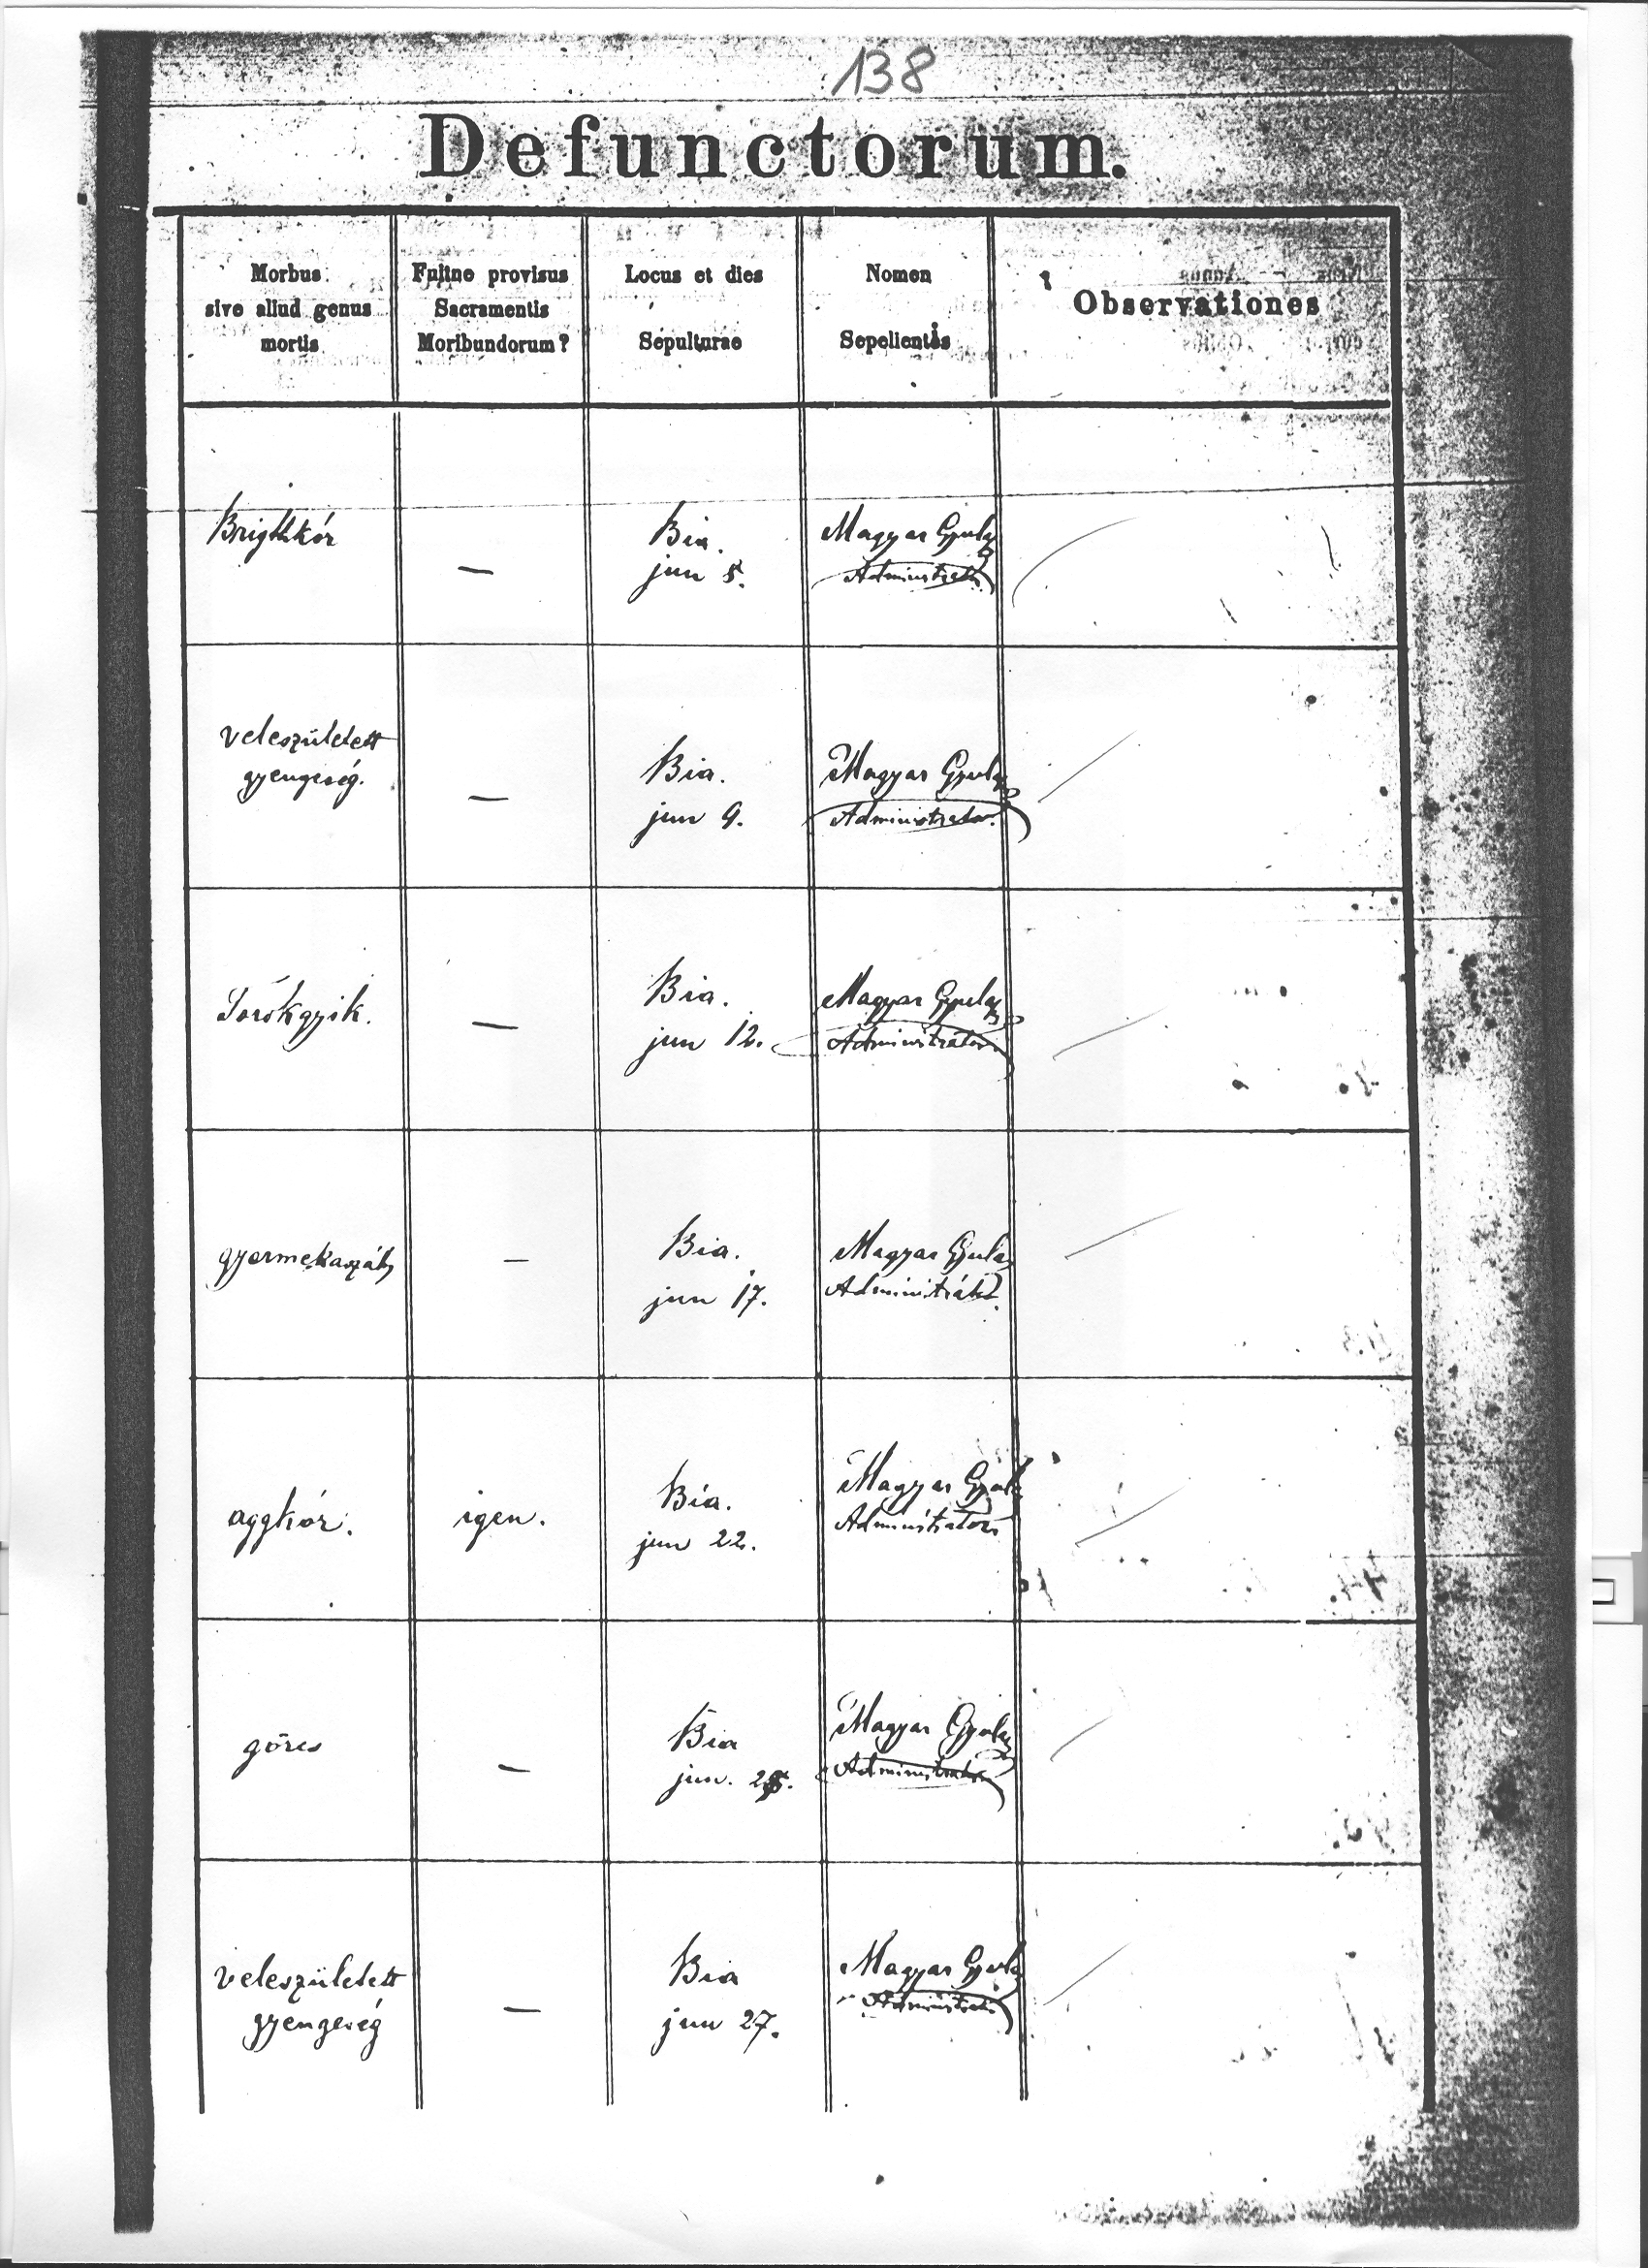 138
Defunctorum.
Morbus
sive aliud genus
mortis
Fuitne provisus
Sacramentis
Moribundorum?
Locus et dies
Sepulturae
Nomen
Sepelientis
Observationes
Brigthkór
—
Bia.
jun 5.
Magyar Gyula
Administrator
veleszületett
gyengeség.
—
Bia.
jun 9.
Magyar Gyula
Administrator.
Torokgyik.
—
Bia.
jun 12.
Magyar Gyula
Administrator
gyermekaszály
—
Bia.
jun 17.
Magyar Gyula
Administrátor
aggkór.
igen.
Bia.
jun 22.
Magyar Gyula
Administrator
görcs
—
Bia
jun. 25.
Magyar Gyula
Administrator
veleszületett
gyengeség
—
Bia
jun 27.
Magyar Gyula
Administrator